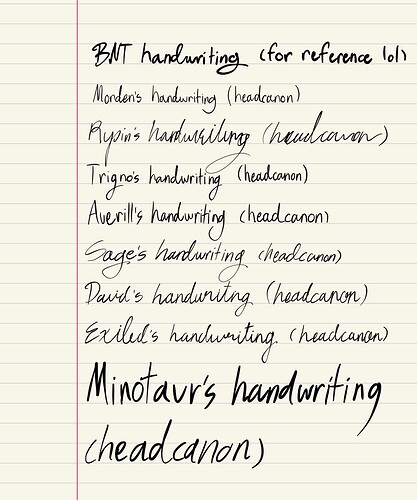 BNT handwriting (for reference lol)
Morden's handwriting (headcanon)
Rypin's handwriting (headcanon)
Trigno's handwriting (headcanon)
Averill's handwriting (headcanon)
Sage's handwriting (headcanon)
David's handwriting (headcanon)
Exiled's handwriting. (headcanon)
Minotaur's handwriting
(headcanon)